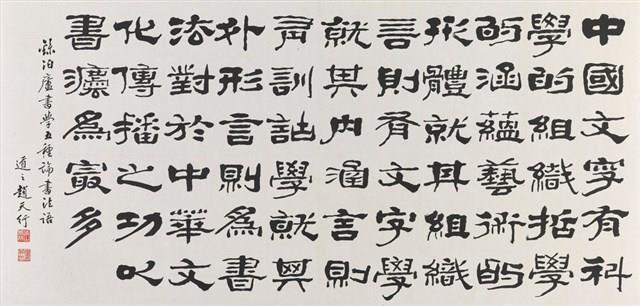 中國文字有科
學的組織哲學
的涵蘊藝術的
形體就其組織
言則有文字學
就其内涵言則
有訓詁學就其
外形言則為書
法對於中華文
化傳播之功以
書灋為最多
泊廬書学五種論書法语
道之趙天行